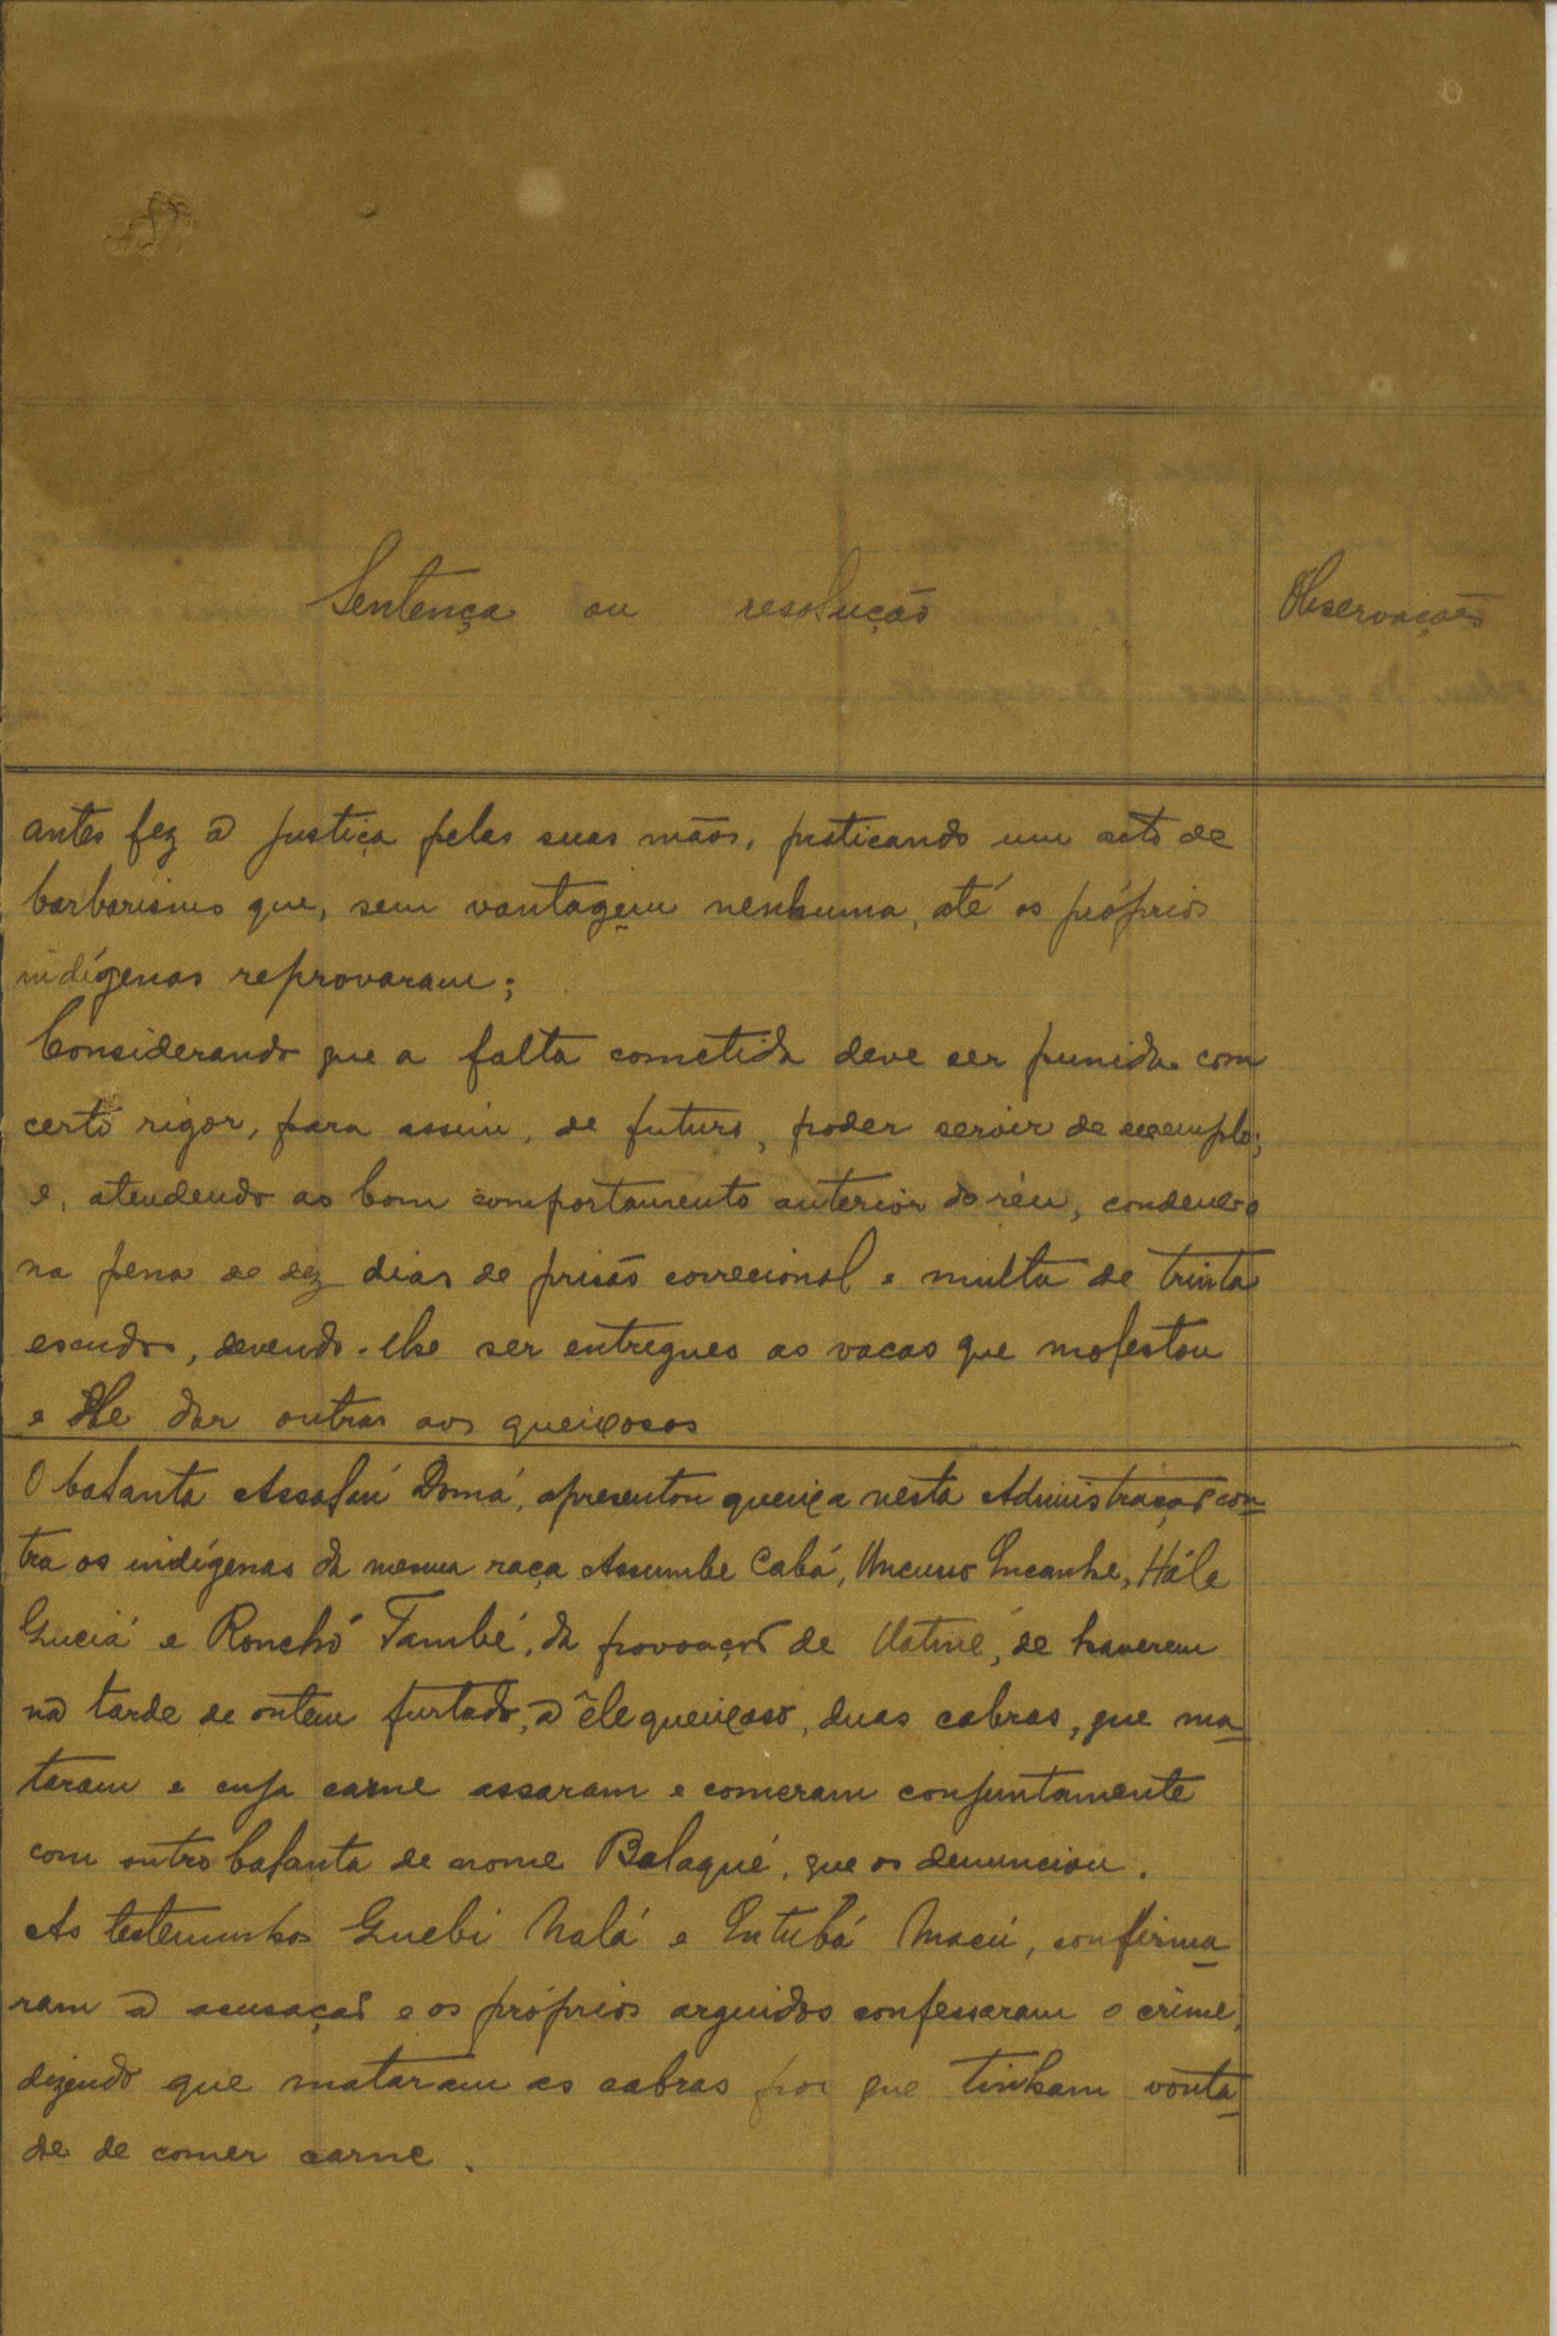 Sentença ou resolução
Observações
antes fez a justiça pelas suas mãos, praticando um acto de
barbarismo que, sem vantagem nenhuma, até os próprios
indígenas reprovaram;
Considerando que a falta cometida deve ser punida com
certo rigor, para assim, de futuro, poder servir de exemplo;
e, atendendo ao bom comportamento anterior do réu, condeno-o
na pena de dez dias de prisão correcional e multa de trinta
escudos, devendo-lhe ser entregues as vacas que molestou
e dar outras aos queixosos
O balanta Assalú Domá, apresentou queixa nesta Administração con-
tra os indígenas da mesma raça Assumbe Cabá, Incanhe, Hále
Guciá e Ronchó També, da povoação de Uatiné, de haverem
na tarde de ontem furtado, a êle queixoso, duas cabras, que ma-
taram e cuja carne assaram e comeram conjuntamente
com outro balanta de nome Balaqué, que os denunciou.
As testemunhas Guebi Nalá e Intubá Macú, confirma-
ram a acusação e os próprios arguidos confessaram o crime,
dizendo que mataram as cabras por que tinham vonta-
de de comer carne.